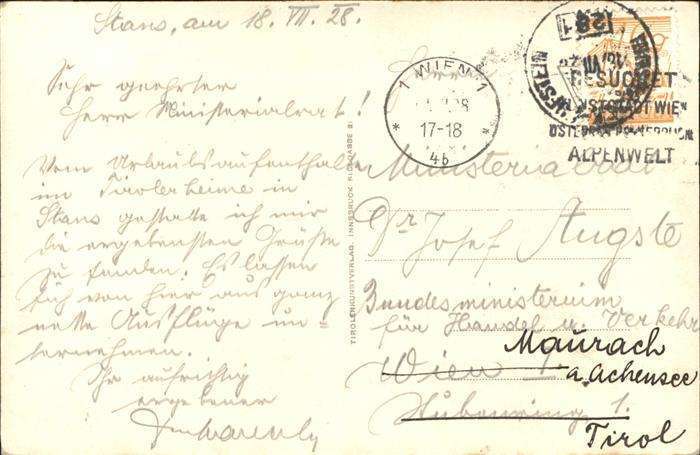 Stans, am 18. VII. 28.
Sehr geehrter
Herr Ministerialrat!
Vom Urlaubsaufenthalte
im Tirolerheime in
Stans gestatte ich mir
die ergebensten Grüße
zu senden. Es lassen
sich von hier aus ganz
nette Ausflüge un=
ternehmen.
Ihr aufrichtig
ergebener
TIROLER KUNSTVERLAG, INNSBRUCK
1 WIEN 1
17-18
4b
BESUCHET
KUNSTSTADT WIEN
ALPENWELT
Herrn
Ministerialrat
Dr Josef Augste
Bundesministerium
für Handel u. Verkehr
Wien I
Stubenring 1.
Maurach
a. Achensee
Tirol